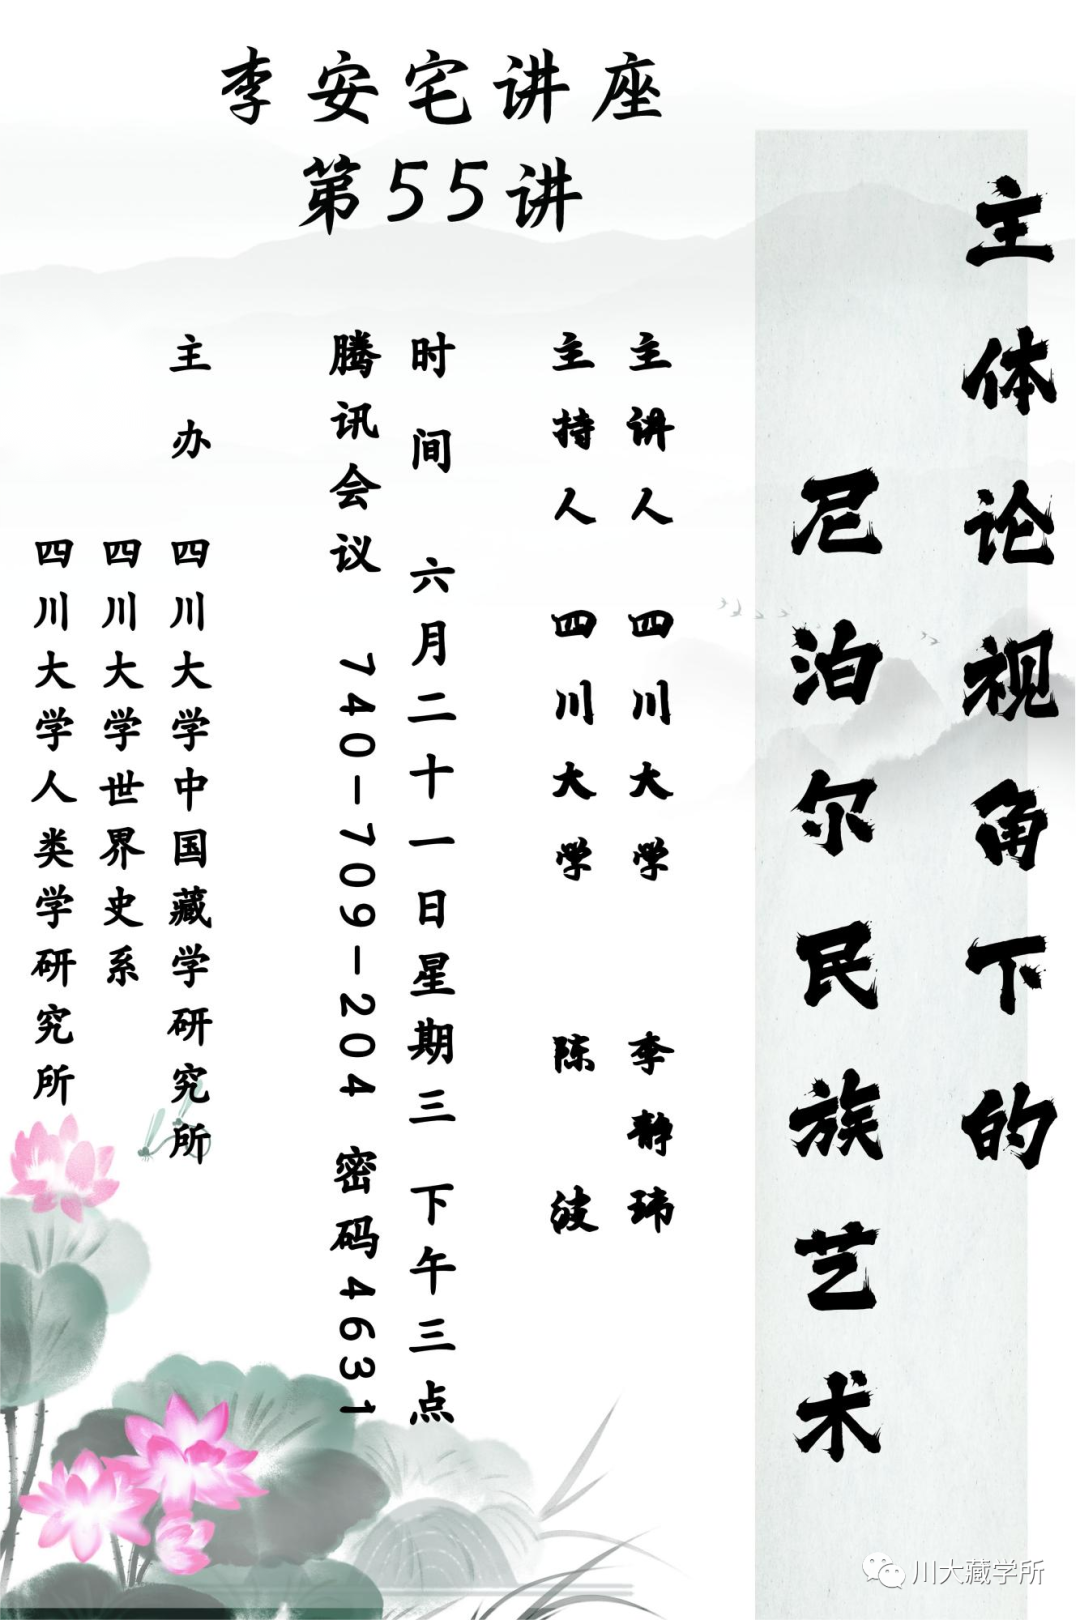 李安宅讲座
第55讲
主体论视角下的
尼泊尔民族艺术
主讲人 四川大学 李静玮
主持人 四川大学 陈波
时间 六月二十一日星期三 下午三点
腾讯会议 740-709-204 密码4631
主办 四川大学中国藏学研究所
四川大学世界史系
四川大学人类学研究所
川大藏学所